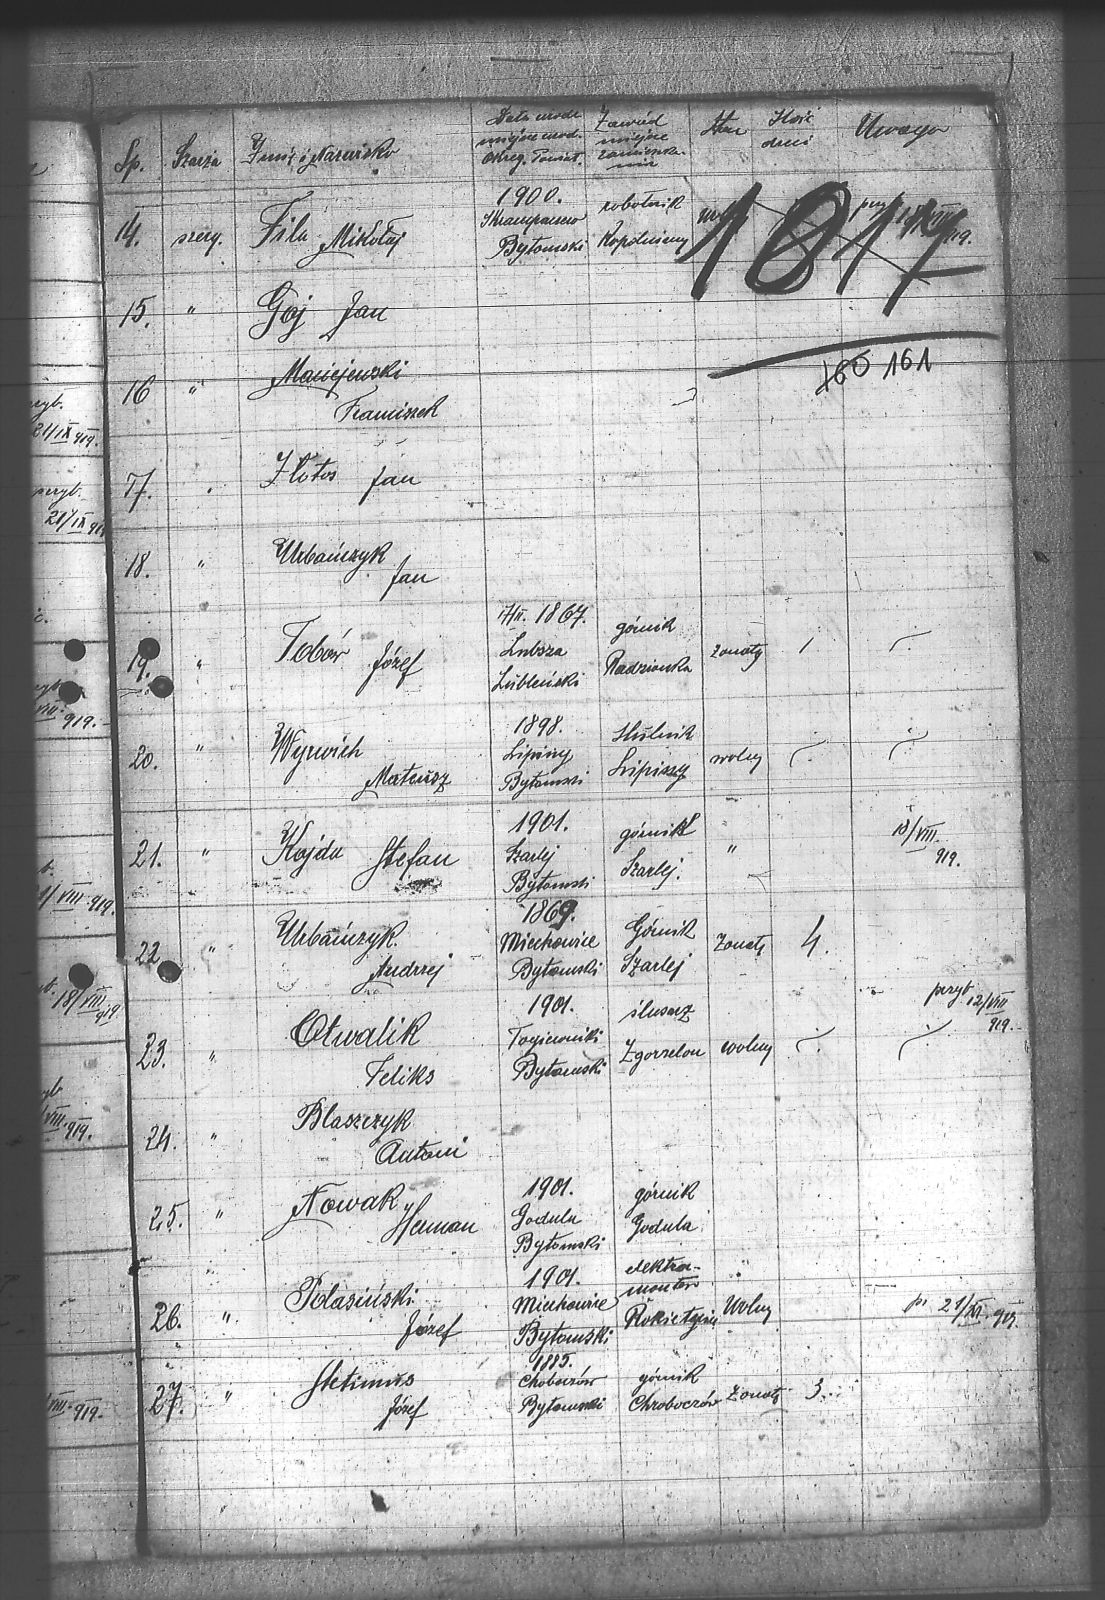 Lp. Szarża Imię i Nazwisko Data urodz. miejsce urod. Okręg. Powiat. Zawód miejsce zamieszka-nia Stan Ilość dzieci Uwaga
1817
160 161
14. szereg. Fila Mikołaj 1900. Bytomski robotnik wolny przyb. 919.
15. " Goj Jan
16 " Maciejewski Franciszek
17. " Złotos Jan
18. " Urbańczyk Jan
19. " Tobór Józef 1867. Lubsza Lubleński górnik Radzionka żonaty 1
20. " Wyrwich Mateusz 1898. Lipiny Bytomski Hutnik Lipiny wolny
21. " Kojda Stefan 1901. Szarlej Bytomski górnik Szarlej. " 18/VIII. 919.
22 " Urbańczyk Andrzej 1869. Miechowice Bytomski Górnik Szarlej Żonaty 4.
23. " Otwalik Feliks 1901. Bytomski ślusarz Zgorzelou wolny przyb. 12/VIII 919.
24. " Blaszczyk Antoni
25. " Nowak Herman 1901. Godula Bytomski górnik Godula
26. " Polasiński Józef 1901. Miechowice Bytomski elektro-monter Wolny 21/XI. 919
27. " Stetimus Józef 1885. Chobocźów Bytomski górnik Chroboczów Żonaty 3.
przyb. 21/IX 919.
przyb. 21/IX 919
VIII. 919.
VIII 919.
18/VIII 919
VIII. 919.
VIII. 919.